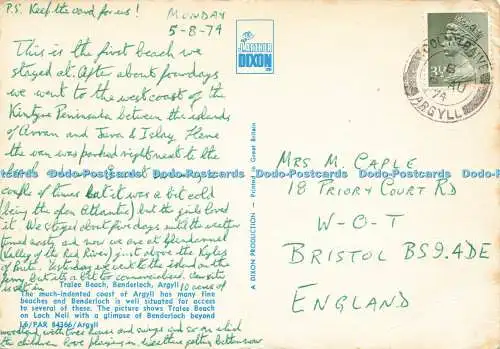 P.S. Keep the card for us!
MONDAY
5-8-74
This is the first beach we
stayed at. After about four days
we went to the west coast of the
Kintyre Peninsula between the islands
of Arran and Jura & Islay. Here
the van was parked right next to the
beach
couple of times but it was a bit cold
(being the open Atlantic) but the girls loved
it. We stayed about five days until the weather
turned nasty and now we are at Glendaruel
(Valley of the Red River) just above the Kyles
of Bute. Yesterday we went to the island on the
ferry but its a bit too commercialised. Our site
is set in 10 acres of
Tralee Beach, Benderloch, Argyll
The much-indented coast of Argyll has many fine
beaches and Benderloch is well situated for access
to several of these. The picture shows Tralee Beach
on Loch Nell with a glimpse of Benderloch beyond
L6/PAR 84366/Argyll
woodland with tree house and swings and so on which
the children love playing in.
THE
J. ARTHUR
DIXON
A DIXON PRODUCTION - Printed in Great Britain
3½
ARGYLL
MRS M. CAPLE
18 PRIORY COURT RD
W-O-T
BRISTOL BS9.4DE
ENGLAND
Dodo-Postcards Dodo-Postcards Dodo-Postcards Dodo-Postcards Dodo-Postcards